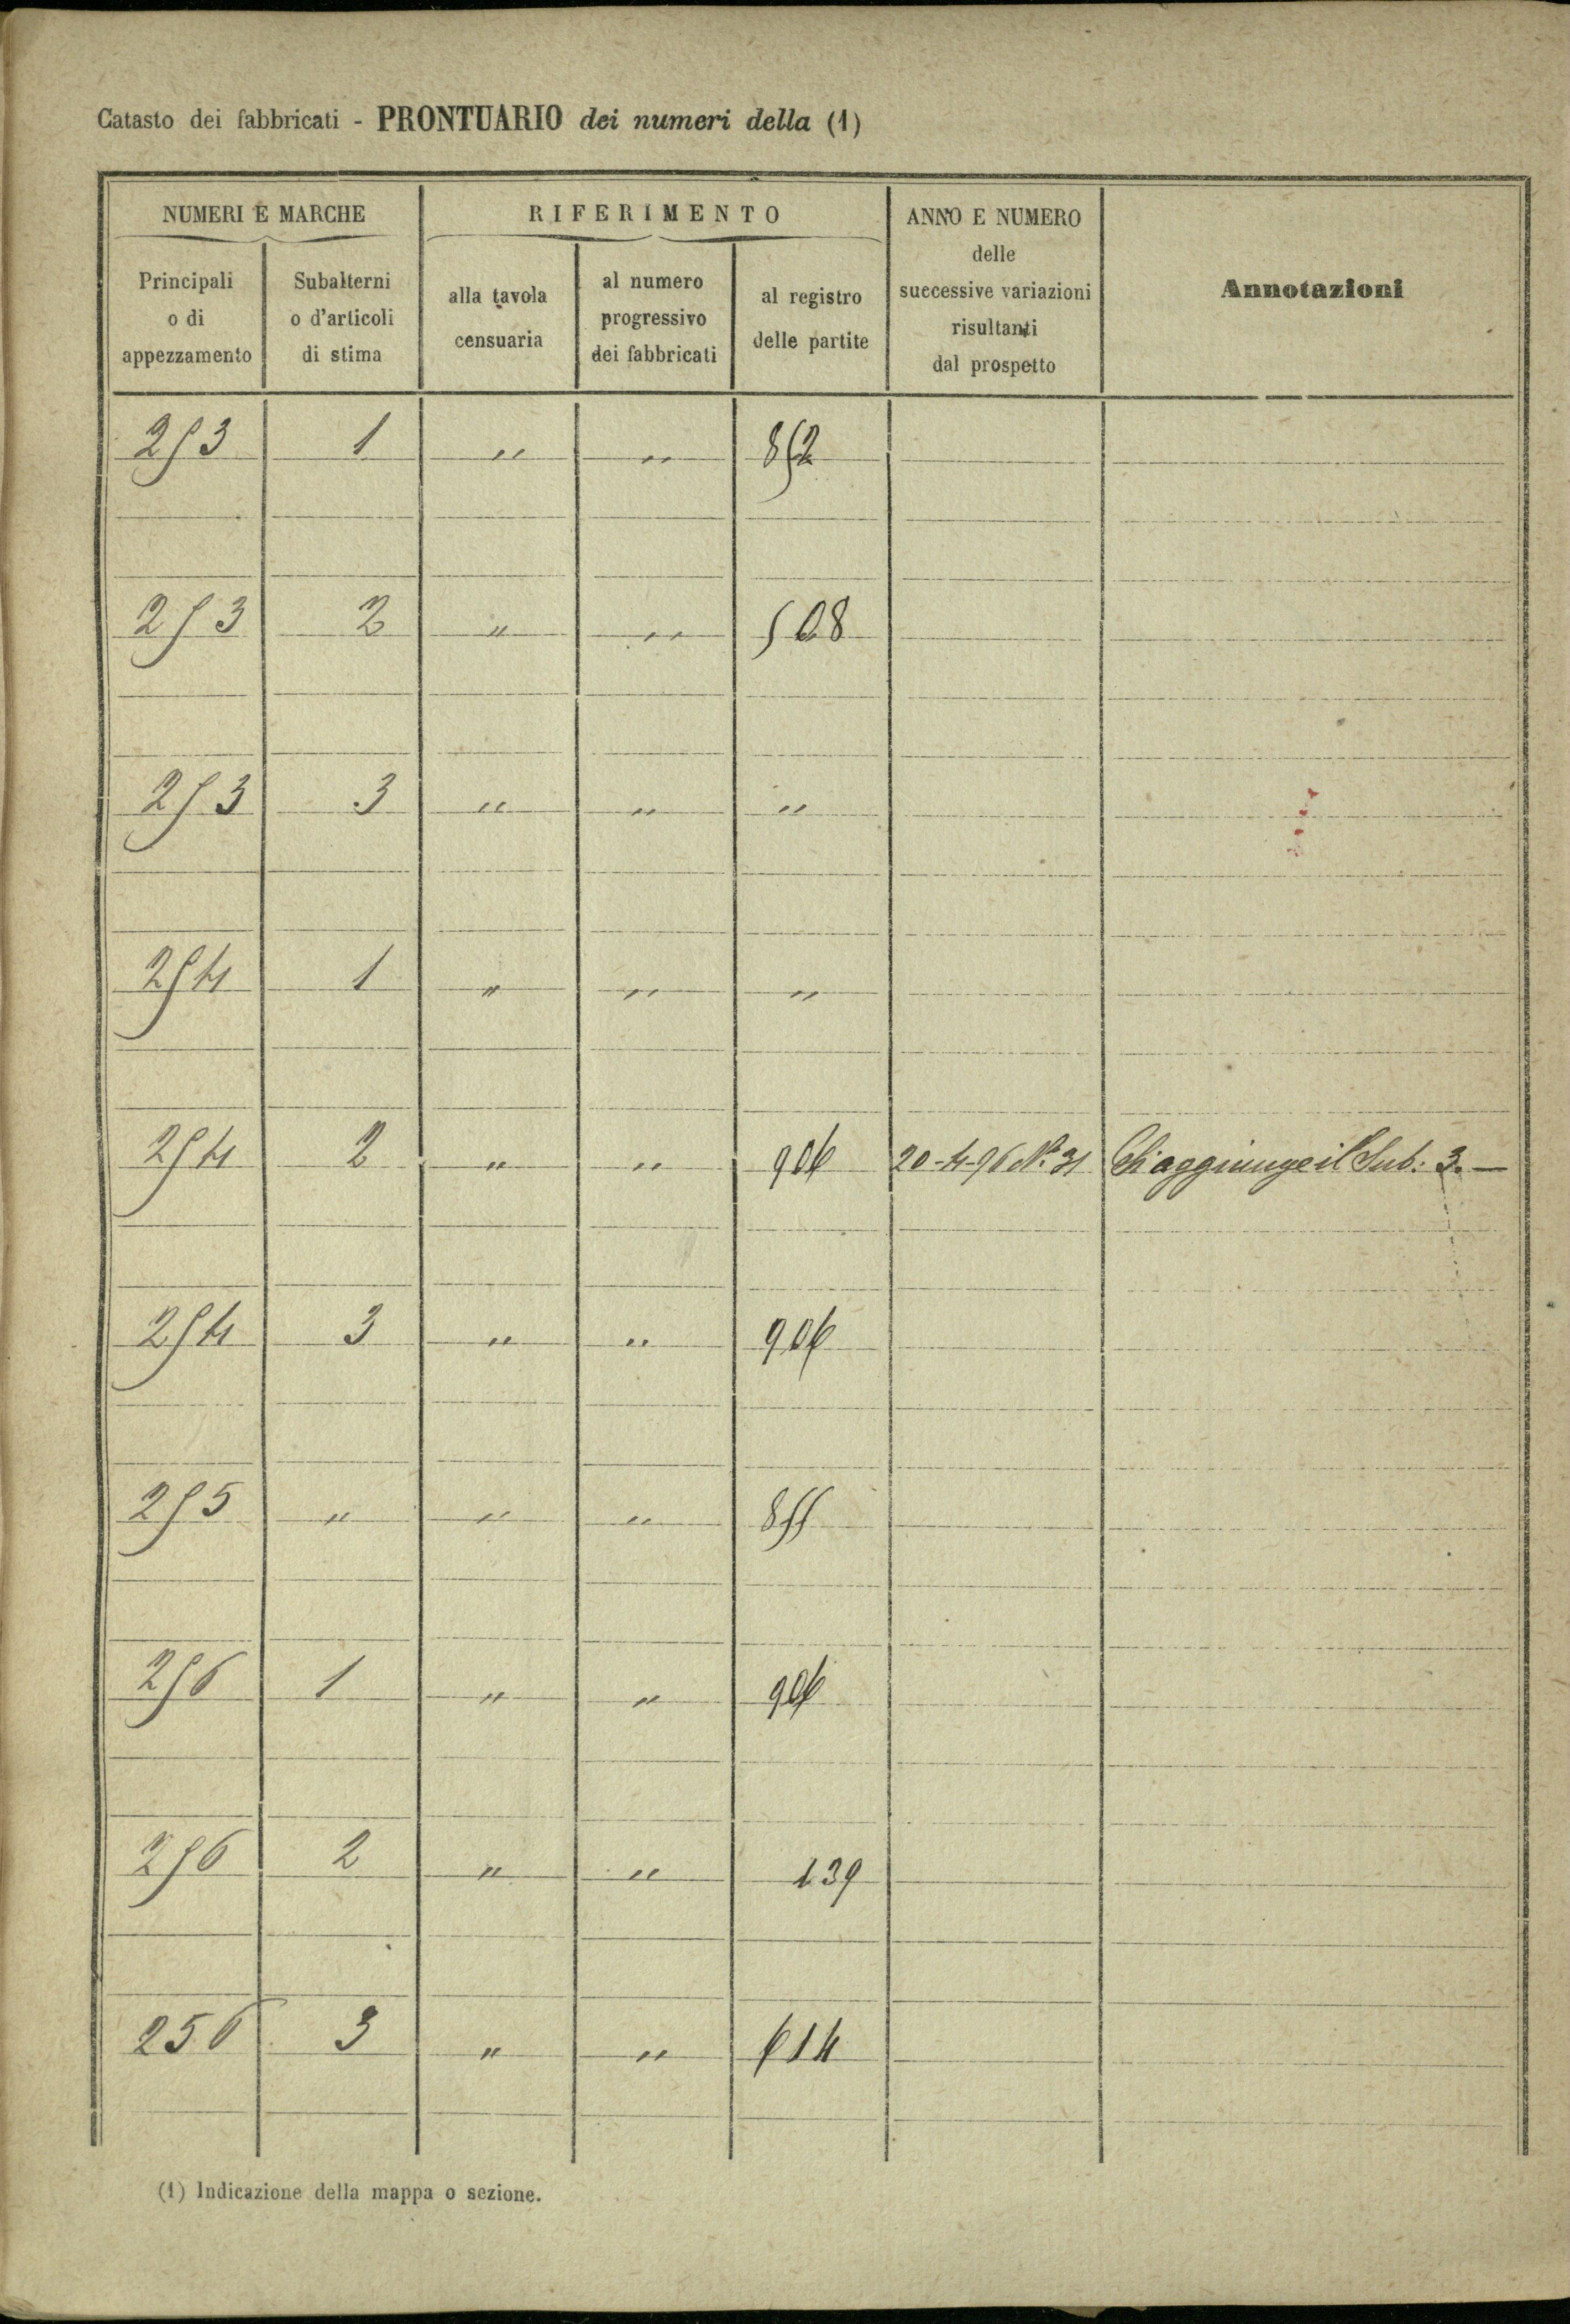 Catasto dei fabbricati - PRONTUARIO dei numeri della (1)
NUMERI E MARCHE
RIFERIMENTO
ANNO E NUMERO
delle
successive variazioni
risultanti
dal prospetto
Annotazioni
Principali
o di
appezzamento
Subalterni
o d'articoli
di stima
alla tavola
censuaria
al numero
progressivo
dei fabbricati
al registro
delle partite
253 1 " " 852
253 2 " " 508
253 3 " " "
254 1 " " "
254 2 " " 906 20-4-96 N.° 31 Si aggiunge il Sub: 3. —
254 3 " " 906
255 " " " 855
256 1 " " 906
256 2 " " 139
256 3 " " 614
(1) Indicazione della mappa o sezione.